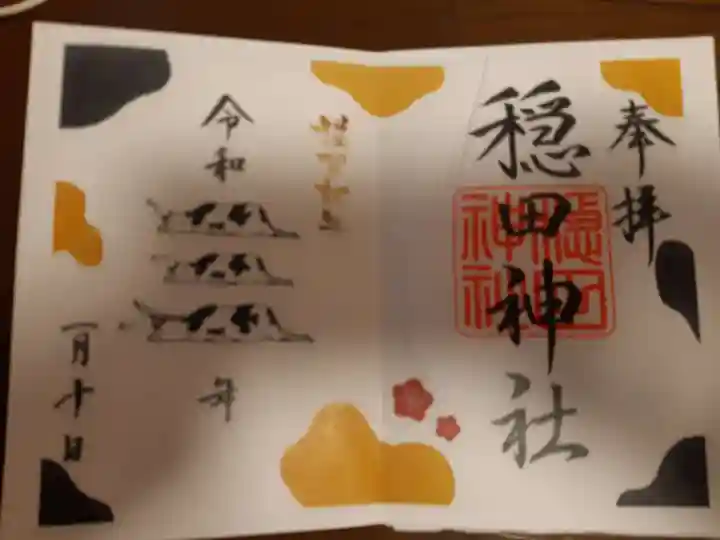 奉拝
穏田神社
穏田
神社
令和
年
一月十日